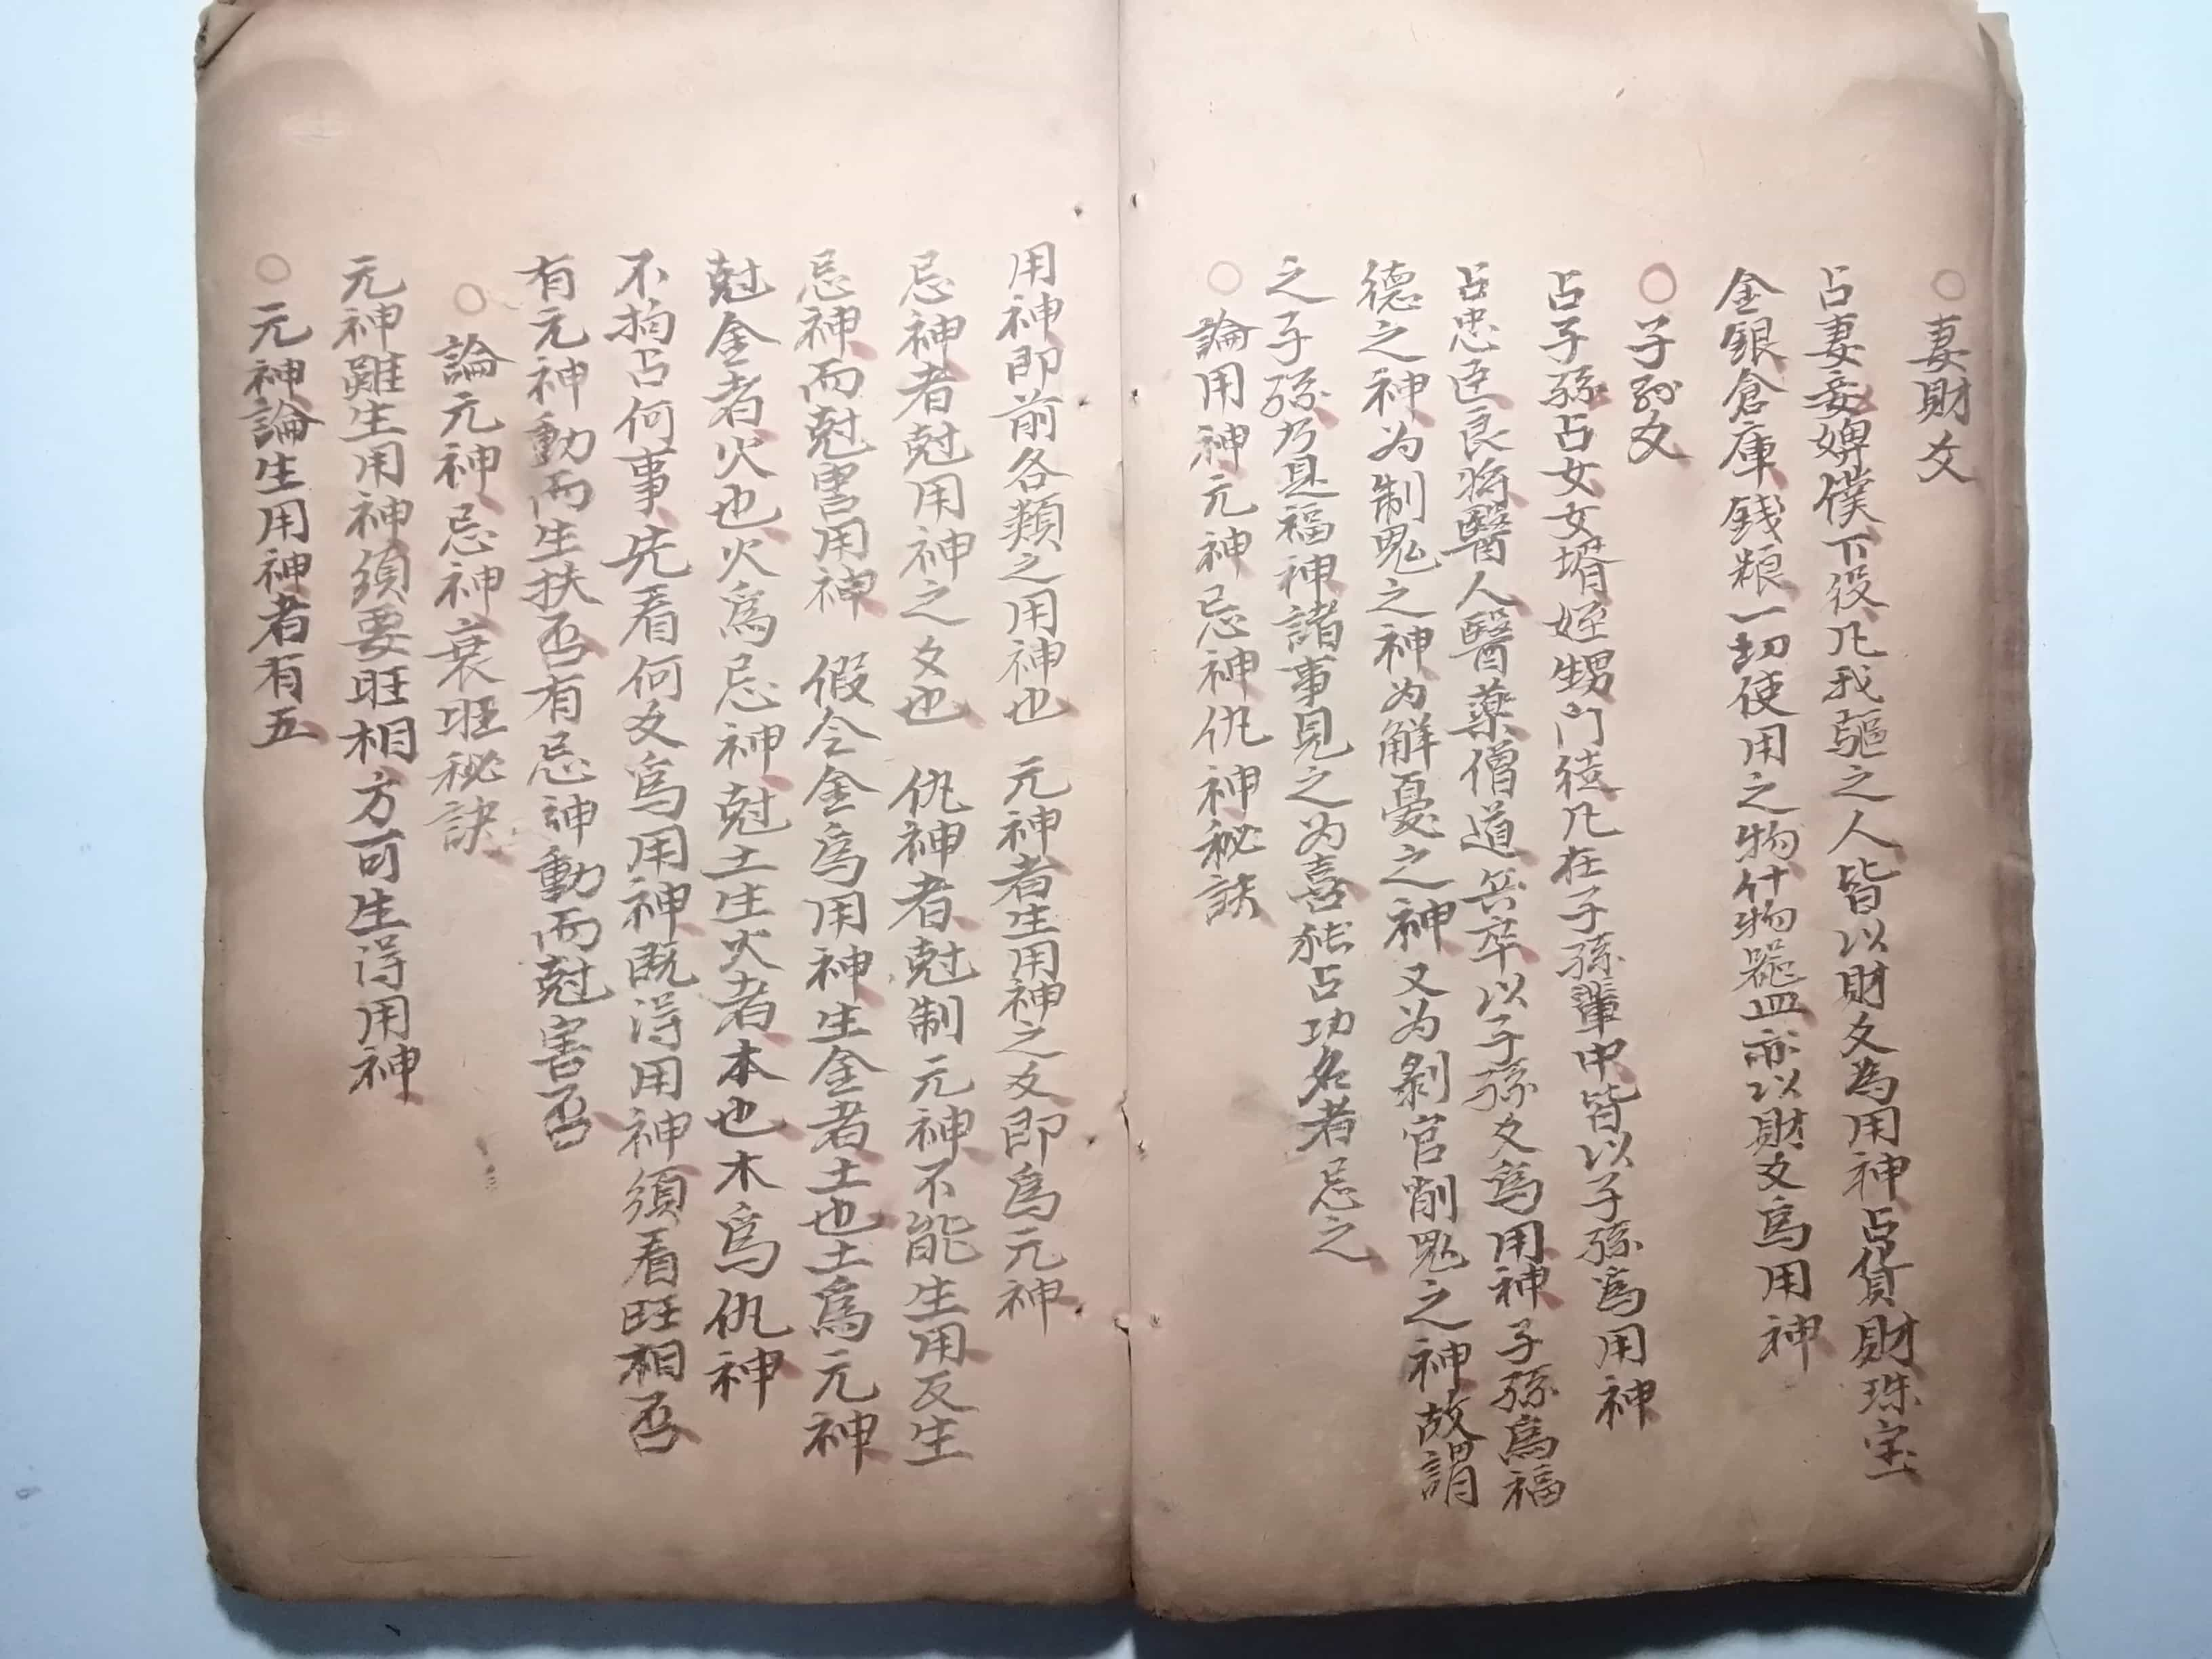 ○妻財爻
占妻妾婢僕下役凡我驅之人皆以財爻為用神占貨財珠宝
金銀倉庫錢粮一切使用之物什物器皿亦以財爻爲用神
○子孫爻
占子孫占女女壻姪甥門徒凡在子孫輩中皆以子孫爲用神
占忠臣良將醫人醫藥僧道兵卒以子孫爻爲用神子孫爲福
德之神为制鬼之神为解憂之神又为剝官削鬼之神故謂
之子孫乃是福神諸事見之为喜独占功名者忌之
○論用神元神忌神仇神秘訣
用神即前各類之用神也 元神者生用神之爻即爲元神
忌神者尅用神之爻也 仇神者尅制元神不能生用反生
忌神而尅害用神 假令金爲用神生金者土也土爲元神
尅金者火也火爲忌神尅土生火者本也木爲仇神
不拘占何事先看何爻爲用神既得用神須看旺相否
有元神動而生扶否有忌神動而尅害否
○論元神忌神衰旺秘訣
元神雖生用神須要旺相方可生得用神
○元神論生用神者有五